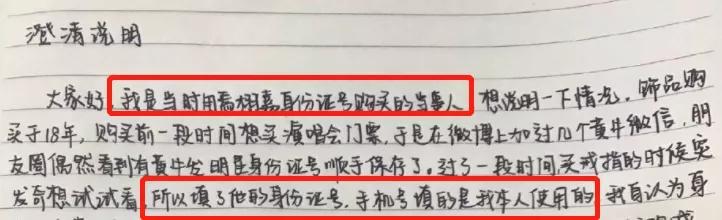 澄清说明
大家好,我是当时用焉栩嘉身份证号购买的当事人 想说明一下情况。饰品购
买于18年,购买前一段时间想买演唱会门票,于是在微博上加过几个黄牛微信,朋
友圈偶然看到有黄牛发明星身份证号顺手保存了。过了一段时间,买戒指的时候突
发奇想试试看,所以填了他的身份证号,手机号填的是我本人使用的 我自认为身